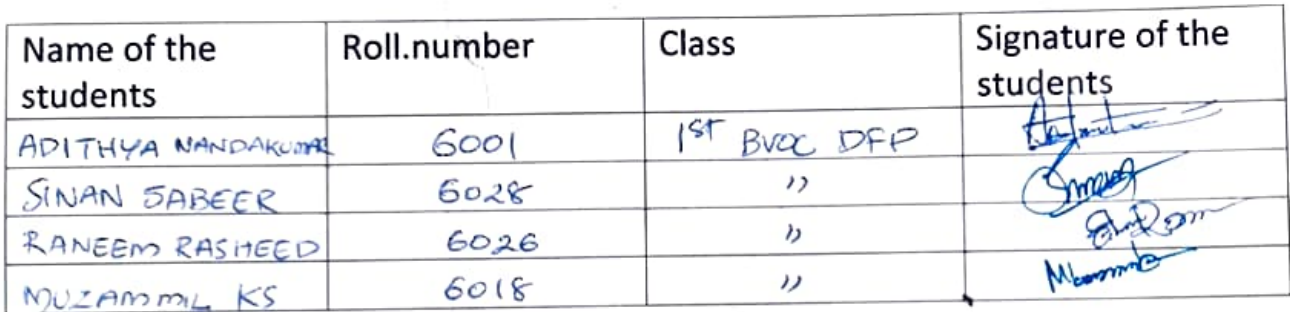 Name of the students Roll.number Class Signature of the students
ADITHYA NANDAKUMAR 6001 1ST BVOC DFP
SINAN SABEER 6028 "
RANEEM RASHEED 6026 "
MUZAMMIL KS 6018 "